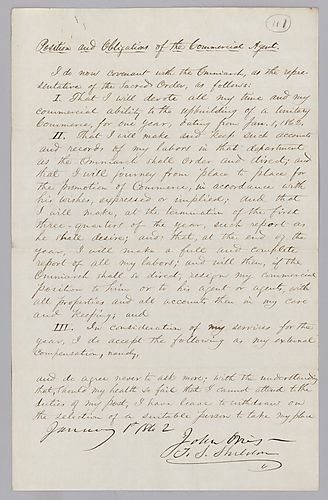 Position and Obligations of the Commercial Agent.
I do now covenant with the Omniarch, as the repre-
sentative of the Sacred Order, as follows:
I. That I will devote all my time and my
commercial ability to the upbuilding of a Unitary
Commerce, for one year, dating from Jan. 1, 1862.
II. That I will make and keep such accounts
and records of my labors in that department
as the Omniarch shall order and direct; and
that I will journey from place to place for
the promotion of Commerce, in accordance with
his wishes, expressed or implied; and that
I will make, at the termination of the first
three-quarters of the year, such report as
he shall desire; and that, at the end of the
year, I will make a full and complete
report of all my labors; and will then, if the
Omniarch shall so direct, resign my commercial
position to him or to his agent or agents, with
all properties and all accounts then in my care
and keeping; and
III. In consideration of my services for the
year, I do accept the following as my external
compensation, namely,
and do agree never to ask more; with the understanding
that, should my health so fail that I cannot attend to the
duties of my post, I have leave to withdraw on
the selection of a suitable person to take my place
January 1st 1862
John Orvis
T. S. Sheldon